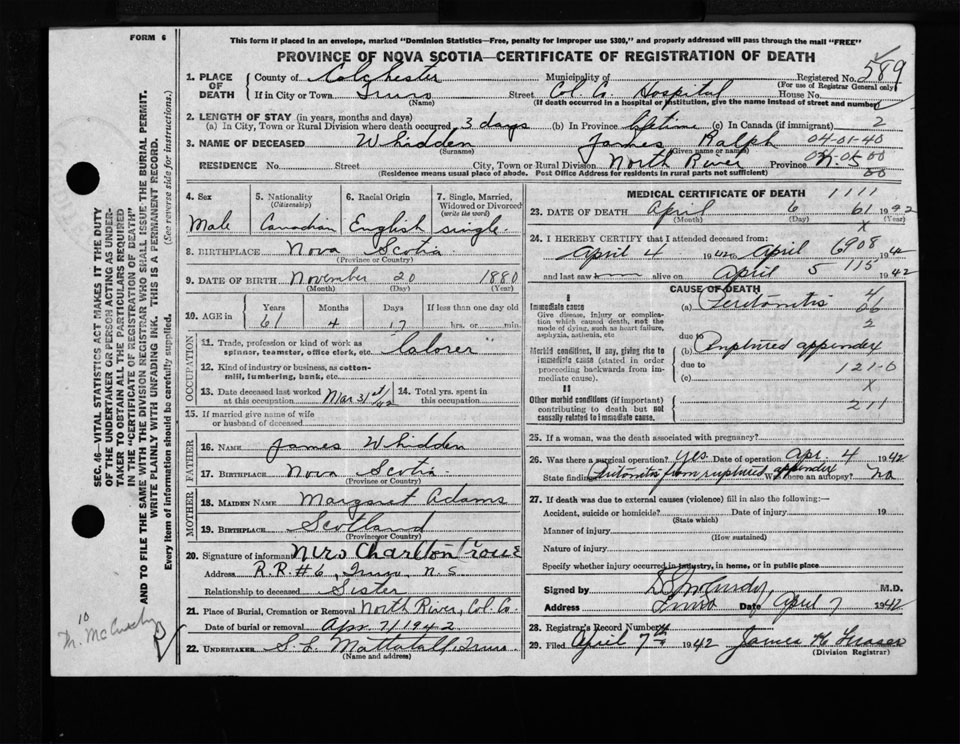 FORM 6
This form if placed in an envelope, marked "Dominion Statistics—Free, penalty for improper use $300," and properly addressed will pass through the mail "FREE"
PROVINCE OF NOVA SCOTIA—CERTIFICATE OF REGISTRATION OF DEATH
1. PLACE OF DEATH County of Colchester Municipality of Registered No. 589
(For use of Registrar General only)
If in City or Town Truro Street Col. Co. Hospital House No.
(Name) (If death occurred in a hospital or institution, give the name instead of street and number)
2. LENGTH OF STAY (in years, months and days)
(a) In City, Town or Rural Division where death occurred 3 days (b) In Province lifetime (c) In Canada (if immigrant) 2
3. NAME OF DECEASED Whidden James Ralph 04-01-40
(Surname) (Given name or names)
RESIDENCE No. Street City, Town or Rural Division North River Province N.S.
(Residence means usual place of abode. Post Office Address for residents in rural parts not sufficient)
4. Sex 5. Nationality (Citizenship) 6. Racial Origin 7. Single, Married, Widowed or Divorced (write the word)
Male Canadian English single
8. BIRTHPLACE Nova Scotia
(Province or Country)
9. DATE OF BIRTH November 20 1880
(Month) (Day) (Year)
10. AGE in Years Months Days If less than one day old
61 4 17 hrs. or min.
OCCUPATION
11. Trade, profession or kind of work as spinner, teamster, office clerk, etc.
12. Kind of industry or business, as cotton-mill, lumbering, bank, etc.
13. Date deceased last worked at this occupation Mar 31st/42 14. Total yrs. spent in this occupation
15. If married give name of wife or husband of deceased
FATHER
16. NAME James Whidden
17. BIRTHPLACE Nova Scotia
(Province or Country)
MOTHER
18. MAIDEN NAME Margaret Adams
19. BIRTHPLACE Scotland
(Province or Country)
20. Signature of informant Mrs Charlton
Address R.R.#6, Truro, N.S
Relationship to deceased Sister
21. Place of Burial, Cremation or Removal North River, Col. Co.
Date of burial or removal Apr. 7/1942
22. UNDERTAKER S. L. Mattatall Truro
(Name and address)
MEDICAL CERTIFICATE OF DEATH 1111
23. DATE OF DEATH April 6 61 1942
(Month) (Day) (Year)
24. I HEREBY CERTIFY that I attended deceased from: x
April 4 1942 to April 6908 1942
and last saw alive on April 5 115 1942
CAUSE OF DEATH
I
Immediate cause (a) Peritonitis
Give disease, injury or complication which caused death, not the mode of dying, such as heart failure, asphyxia, asthenia, etc
due to
Morbid conditions, if any, giving rise to immediate cause (stated in order proceeding backwards from immediate cause). (b) Ruptured appendix
due to
(c) 121-0
II
x
Other morbid conditions (if important) contributing to death but not causally related to immediate cause. 211
25. If a woman, was the death associated with pregnancy?
26. Was there a surgical operation? Yes Date of operation Apr. 4 1942
State findings Peritonitis from ruptured appendix Was there an autopsy? No
27. If death was due to external causes (violence) fill in also the following:—
Accident, suicide or homicide? Date of injury 19
(State which)
Manner of injury
(How sustained)
Nature of injury
Specify whether injury occurred in industry, in home, or in public place
Signed by M.D.
Address Truro Date April 7 1942
28. Registrar's Record Number
29. Filed April 7th 1942 James H. Fraser
(Division Registrar)
SEC. 46—VITAL STATISTICS ACT MAKES IT THE DUTY
OF THE UNDERTAKER OR PERSON ACTING AS UNDER-
TAKER TO OBTAIN ALL THE PARTICULARS REQUIRED
IN THE "CERTIFICATE OF REGISTRATION OF DEATH"
AND TO FILE THE SAME WITH THE DIVISION REGISTRAR WHO SHALL ISSUE THE BURIAL PERMIT.
WRITE PLAINLY WITH UNFADING INK. THIS IS A PERMANENT RECORD.
Every item of information should be carefully supplied. (See reverse side for instructions.)
10